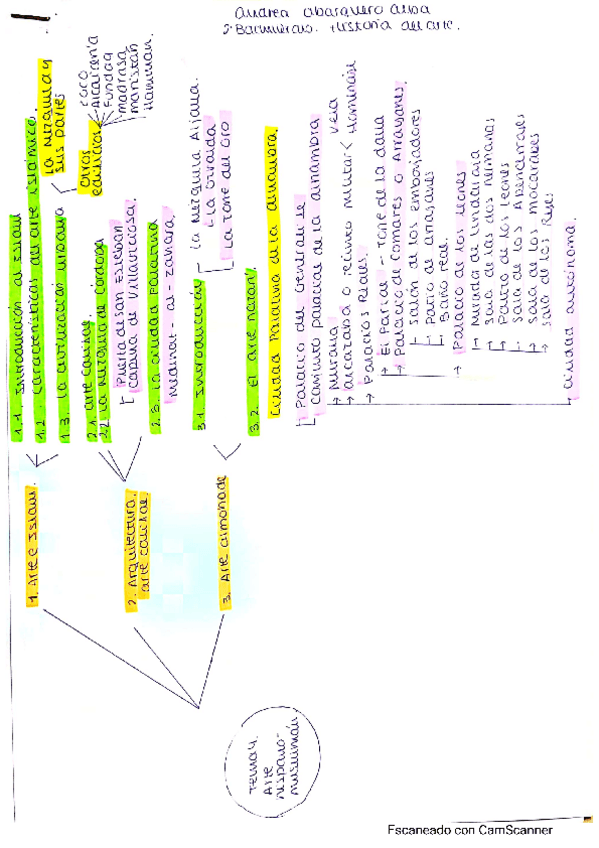 Andrea abarquero alba
2º Bachillerato. Historia del arte.
Tema 4.
Arte
hispano-
musulmán
1. Arte e Islam.
1.1. Introducción al Islam
1.2. Características del arte islámico.
1.3. La civilización urbana
La mezquita y
sus partes
Otros
edificios
zoco
Alcaicería
Funduq
madrasa
maristán
Hamman.
2. Arquitectura
arte califal.
2.1. arte califal.
2.2. La mezquita de Córdoba
Puerta de San Esteban
capilla de Villaviciosa.
2.3. La ciudad palatina
Medinat - al - zahara.
3. Arte almohade
3.1. Introducción
La mezquita Aljama.
La Giralda
La Torre del Oro
3.2. El arte nazarí.
Ciudad Palatina de la alhambra.
Palacio del Generalife
conjunto palacial de la alhambra.
Muralla
alcazaba o recinto militar
vela
Homenaje
Palacios Reales.
El Partal - Torre de la dama
Palacio de Comares o Arrayanes.
Salón de los embajadores
Patio de arrayanes
Baño real.
Palacio de los leones
Mirador de Lindaraja
Sala de las dos hermanas
Patio de los leones
Sala de los Abencerrajes
Sala de los mocárabes
Sala de los Reyes
ciudad autónoma.
Escaneado con CamScanner